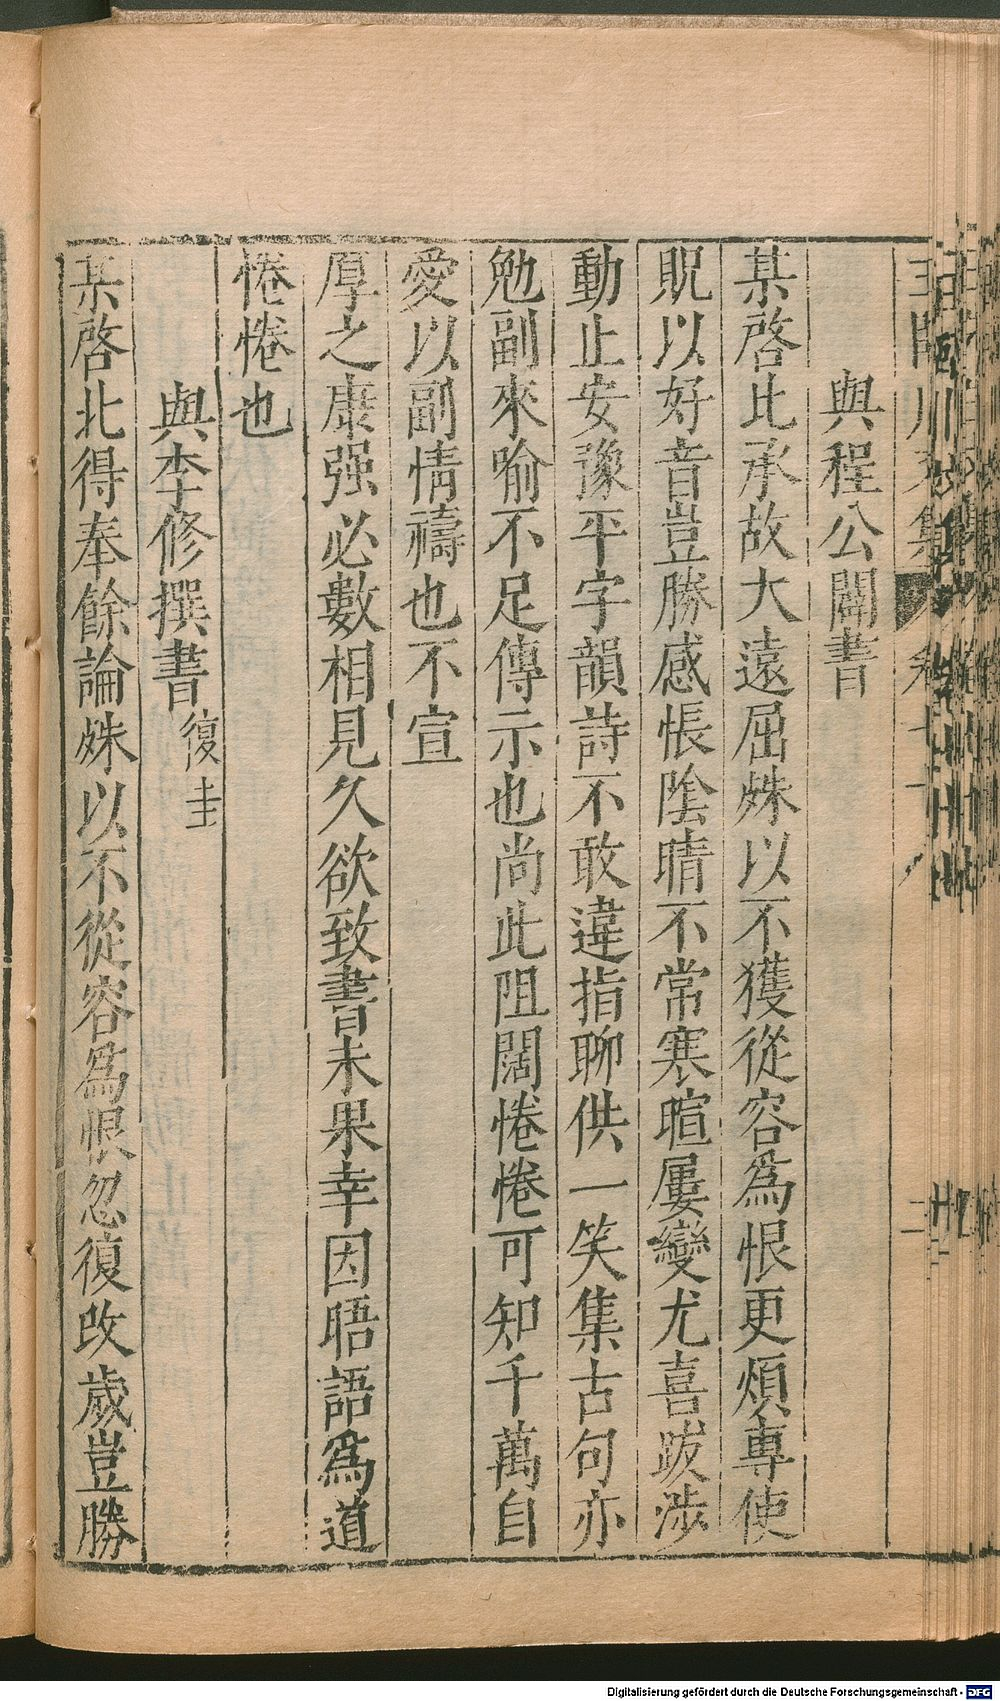 與程公闢書
某啓比承故大遠屈殊以不獲從容爲恨更煩專使
貺以好音豈勝感悵陰晴不常寒暄屢變尤喜跋涉
動止安豫平字韻詩不敢違指聊供一笑集古句亦
勉副來喻不足傳示也尚此阻闊惓惓可知千萬自
愛以副情禱也不宣
厚之康强必數相見久欲致書未果幸因晤語爲道
惓惓也
與李修撰書 復圭
某啓北得奉餘論殊以不從容爲恨忽復改歲豈勝
Digitalisierung gefördert durch die Deutsche Forschungsgemeinschaft - DFG